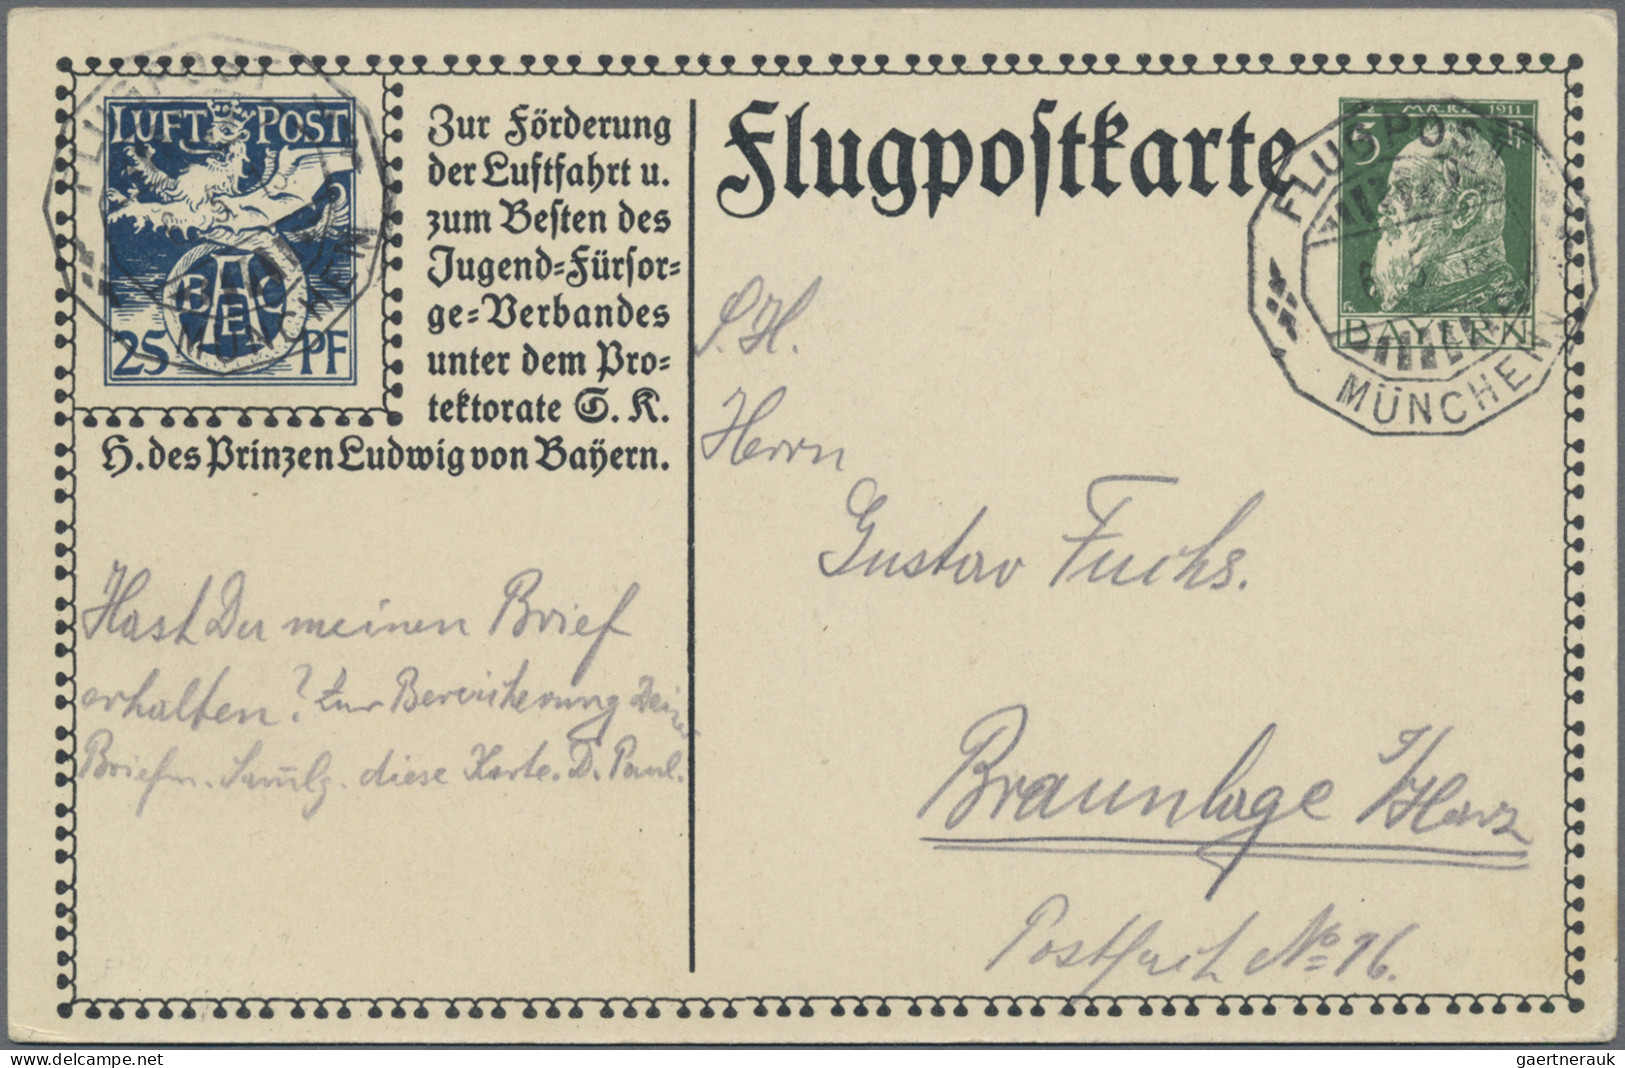 LUFT POST
25 PF
BAEC
FLUGPOST
MÜNCHEN
Zur Förderung
der Luftfahrt u.
zum Besten des
Jugend=Fürsor=
ge=Verbandes
unter dem Pro=
tektorate S. K.
H. des Prinzen Ludwig von Bayern.
Flugpostkarte
MÄRZ 1911
5
BAYERN
FLUGPOST
MÜNCHEN
S. H.
Herrn
Gustav Fuchs.
Braunlage / Harz
Postfach No 16.
Hast Du meinen Brief
erhalten? Zur Bereicherung Deiner
Briefm. Samlg. diese Karte. D. Paul.
gaertnerauk @ www.delcampe.net